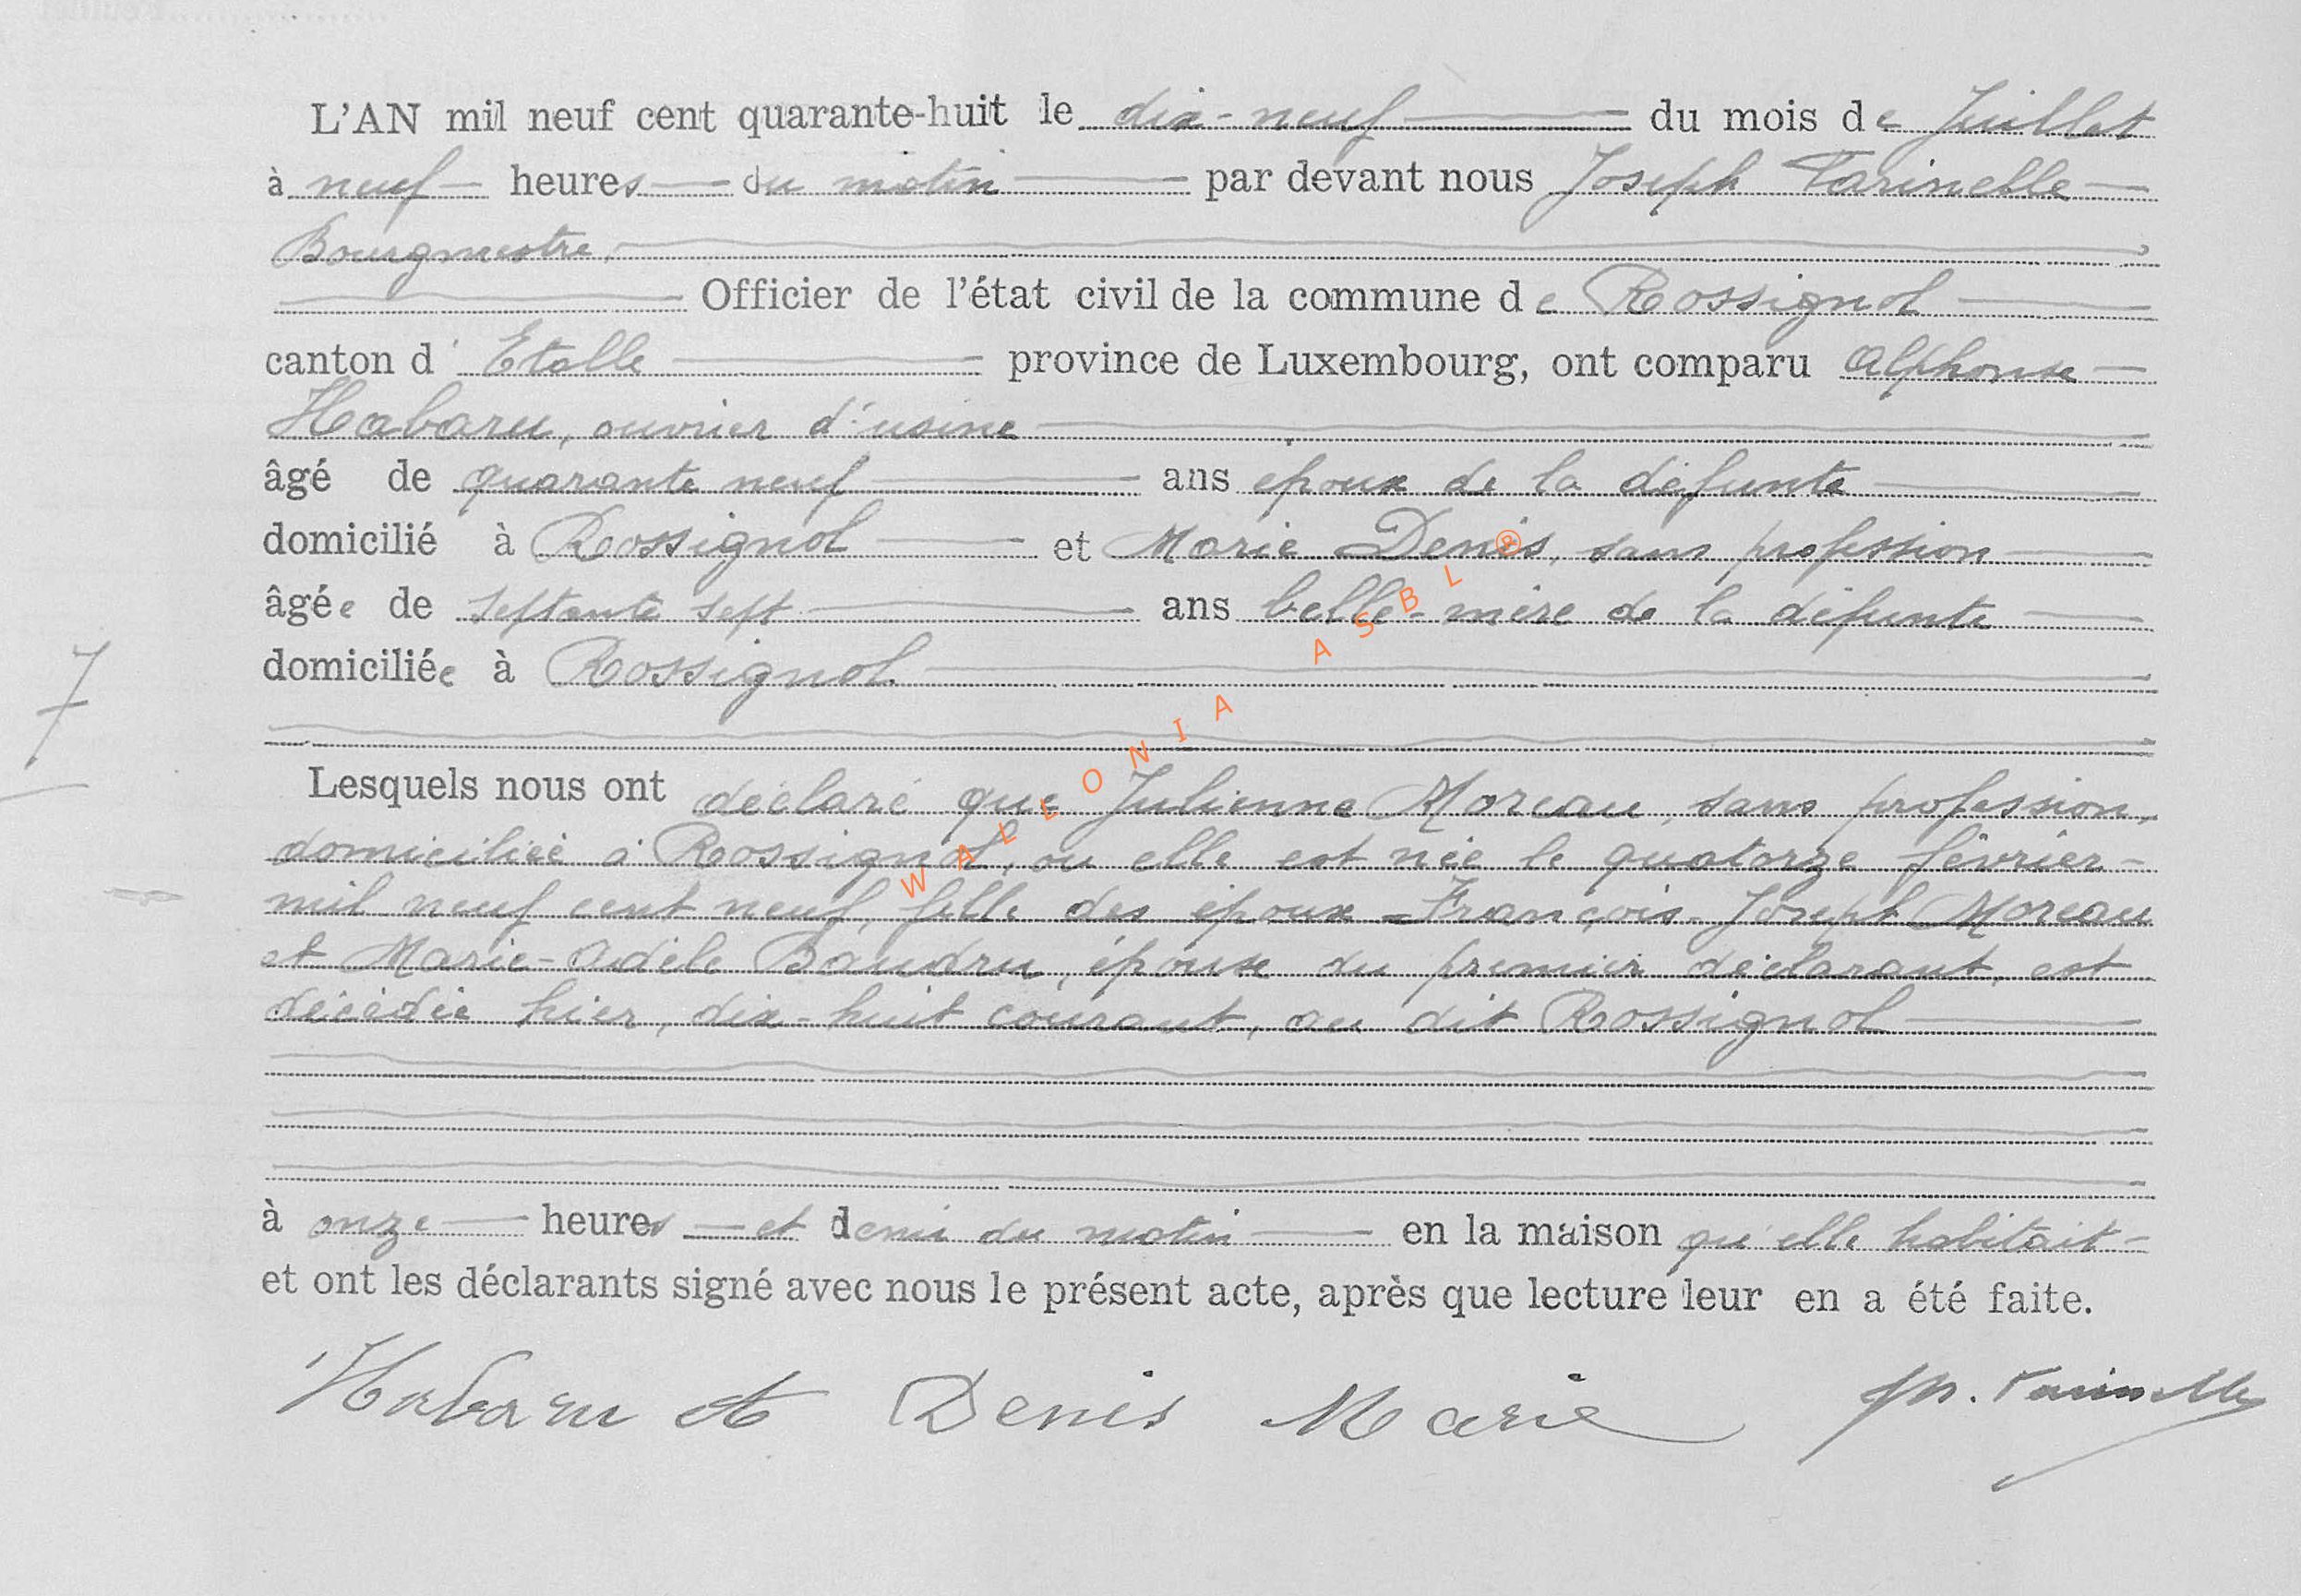 L'AN mil neuf cent quarante-huit le dix-neuf du mois de Juillet
à neuf heures du matin par devant nous Joseph Farinelle
Bourgmestre,
Officier de l'état civil de la commune de Rossignol
canton d'Etalle province de Luxembourg, ont comparu Alphonse
Habaru, ouvrier d'usine
âgé de quarante neuf ans époux de la défunte
domicilié à Rossignol et Marie Denis, sans profession
âgée de septante sept ans belle-mère de la défunte
domiciliée à Rossignol.
7
Lesquels nous ont déclaré que Julienne Moreau, sans profession,
domiciliée à Rossignol, ou elle est née le quatorze février
mil neuf cent neuf, fille des époux François-Joseph Moreau
et Marie-Adèle Baudru, épouse du premier déclarant, est
décédée hier, dix-huit courant, au dit Rossignol
à onze heures et demi du matin en la maison qu'elle habitait
et ont les déclarants signé avec nous le présent acte, après que lecture leur en a été faite.
Habaru A Denis Marie Jh. Farinelle
WALLONIA ASBL ®